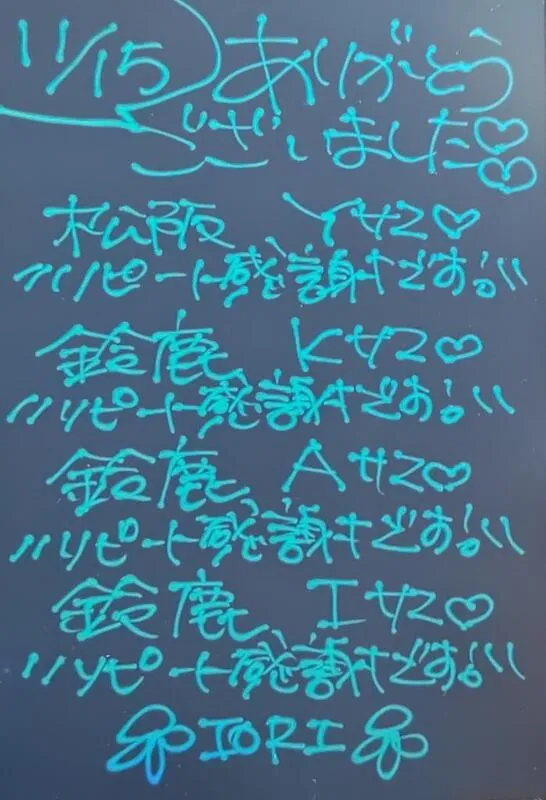 11/15 ありがとう
ございました♡♡
松阪 Yサン♡
〃リピート感謝です!〃
鈴鹿 Kサン♡
〃リピート感謝です!〃
鈴鹿 Aサン♡
〃リピート感謝です!〃
鈴鹿 Iサン♡
〃リピート感謝です!〃
IORI